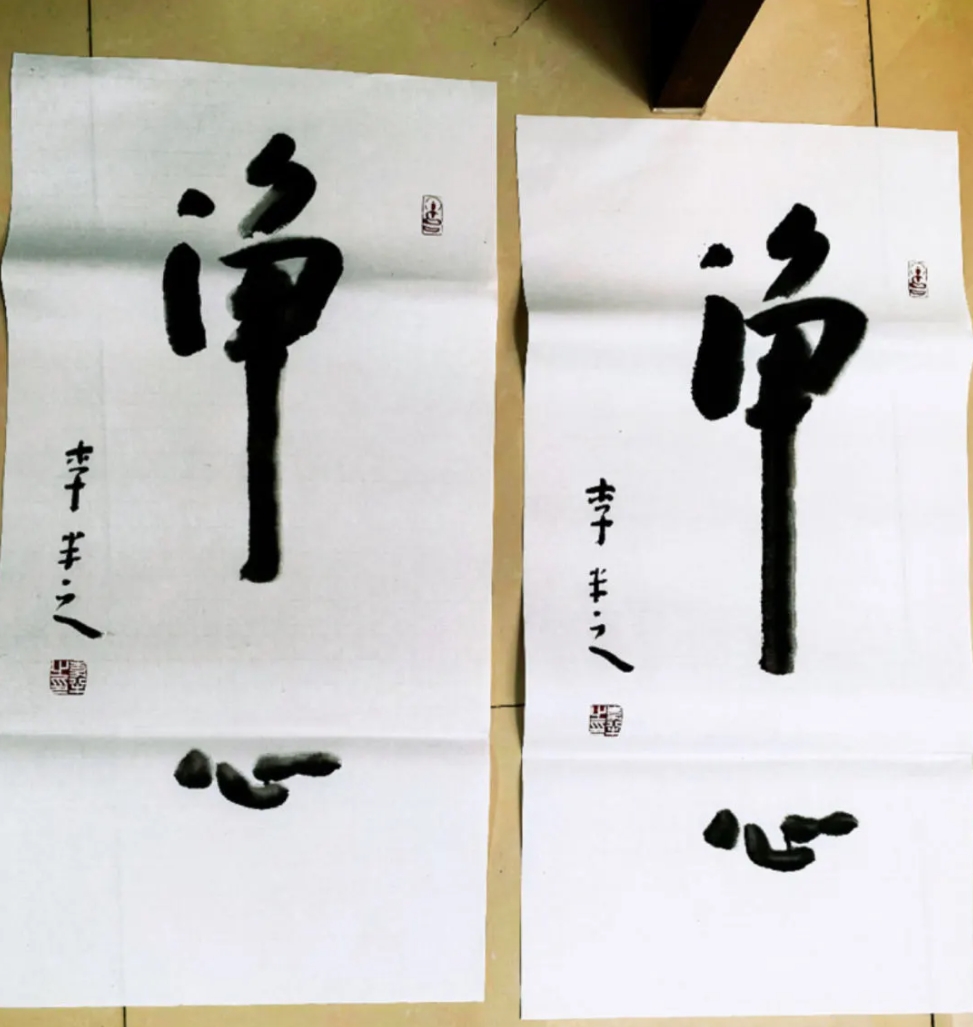 净心
李半之
净心
李半之